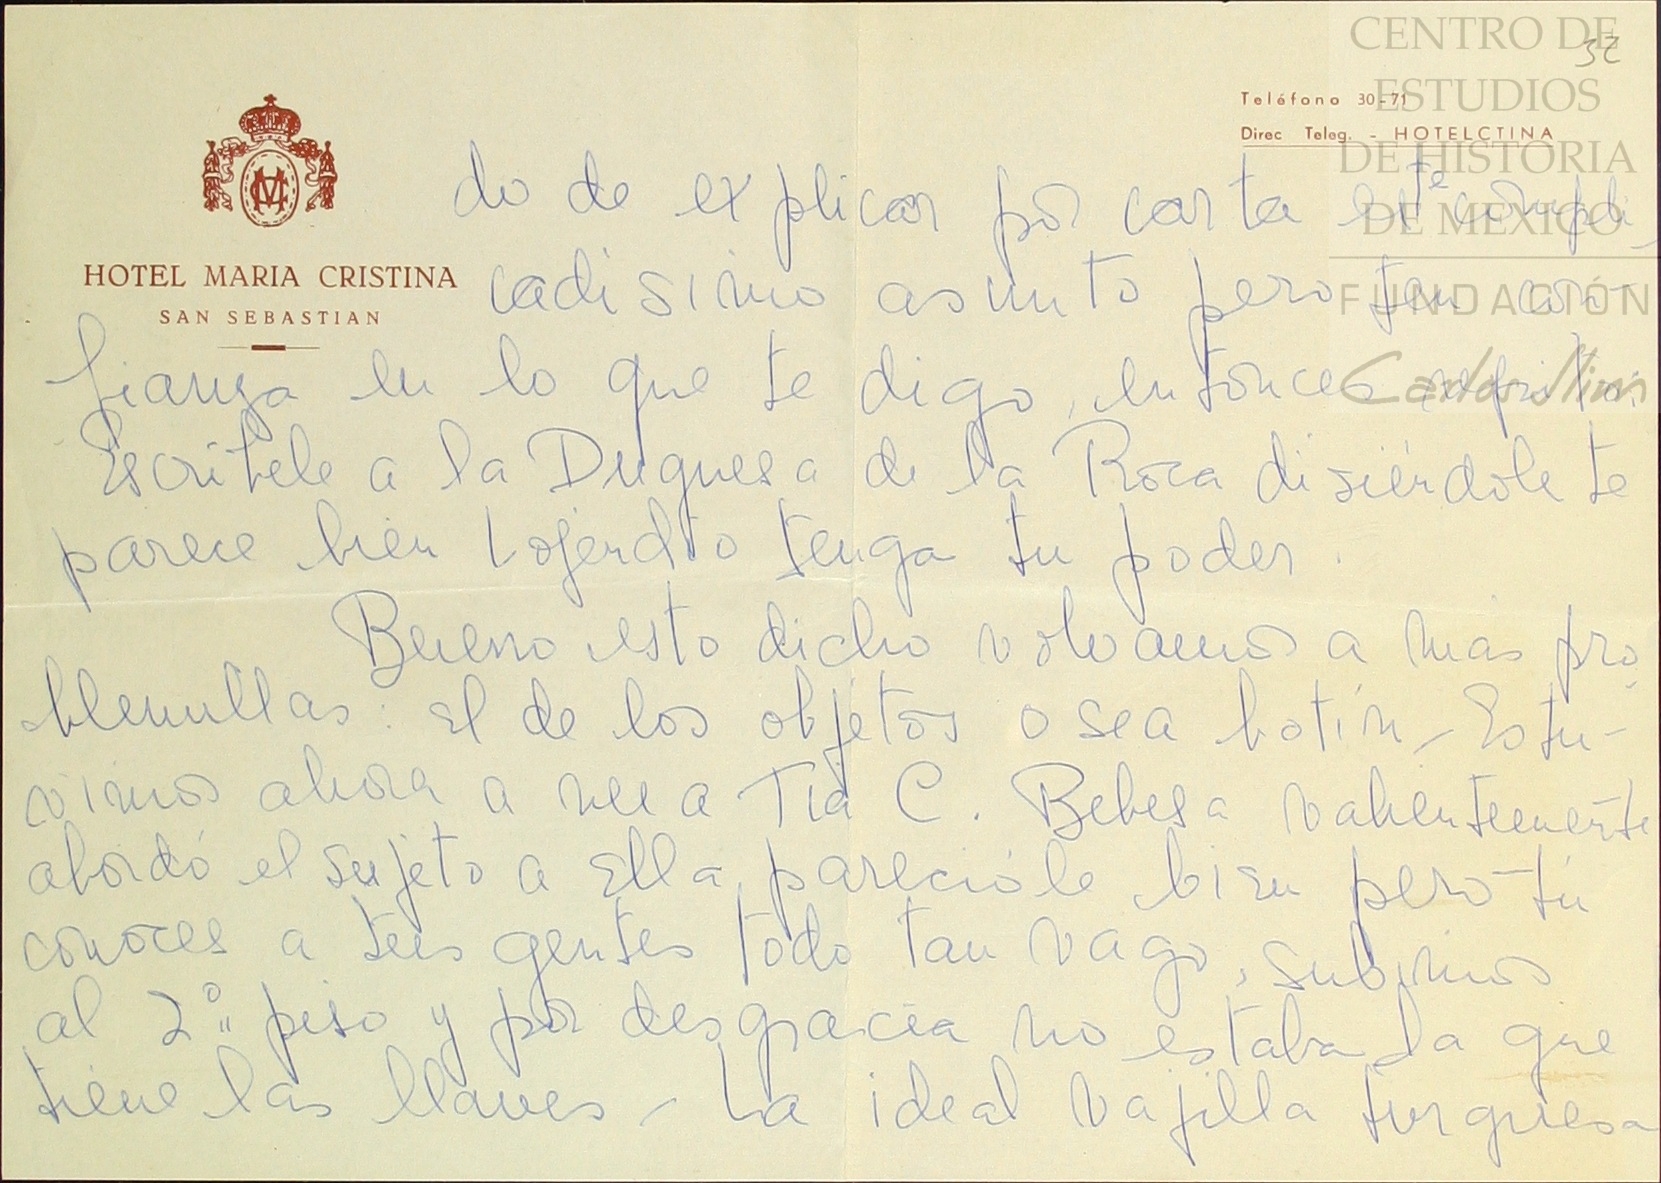 CENTRO DE
ESTUDIOS
DE HISTORIA
DE MEXICO
FUNDACIÓN
Carlos Slim
32
Teléfono 30-71
Direc Teleg. - HOTELCTINA
HOTEL MARIA CRISTINA
SAN SEBASTIAN
do de explicar por carta este compli
cadisimo asunto pero ten con-
fianza en lo que te digo, entonces repito:
Escribele a la Duquesa de la Roca disiéndole te
parece bien Lojendio tenga tu poder.
Bueno esto dicho volvamos a más pro-
blemillas: el de los objetos o sea botín - Estu-
vimos ahora a ver a Tía C. Bebesa valientemente
abordó el sujeto a Ella, parecióle bien pero tú
conoces a tus gentes todo tan vago, subimos
al 2º piso y por desgracia no estaba la que
tiene las llaves - La ideal vajilla turquesa